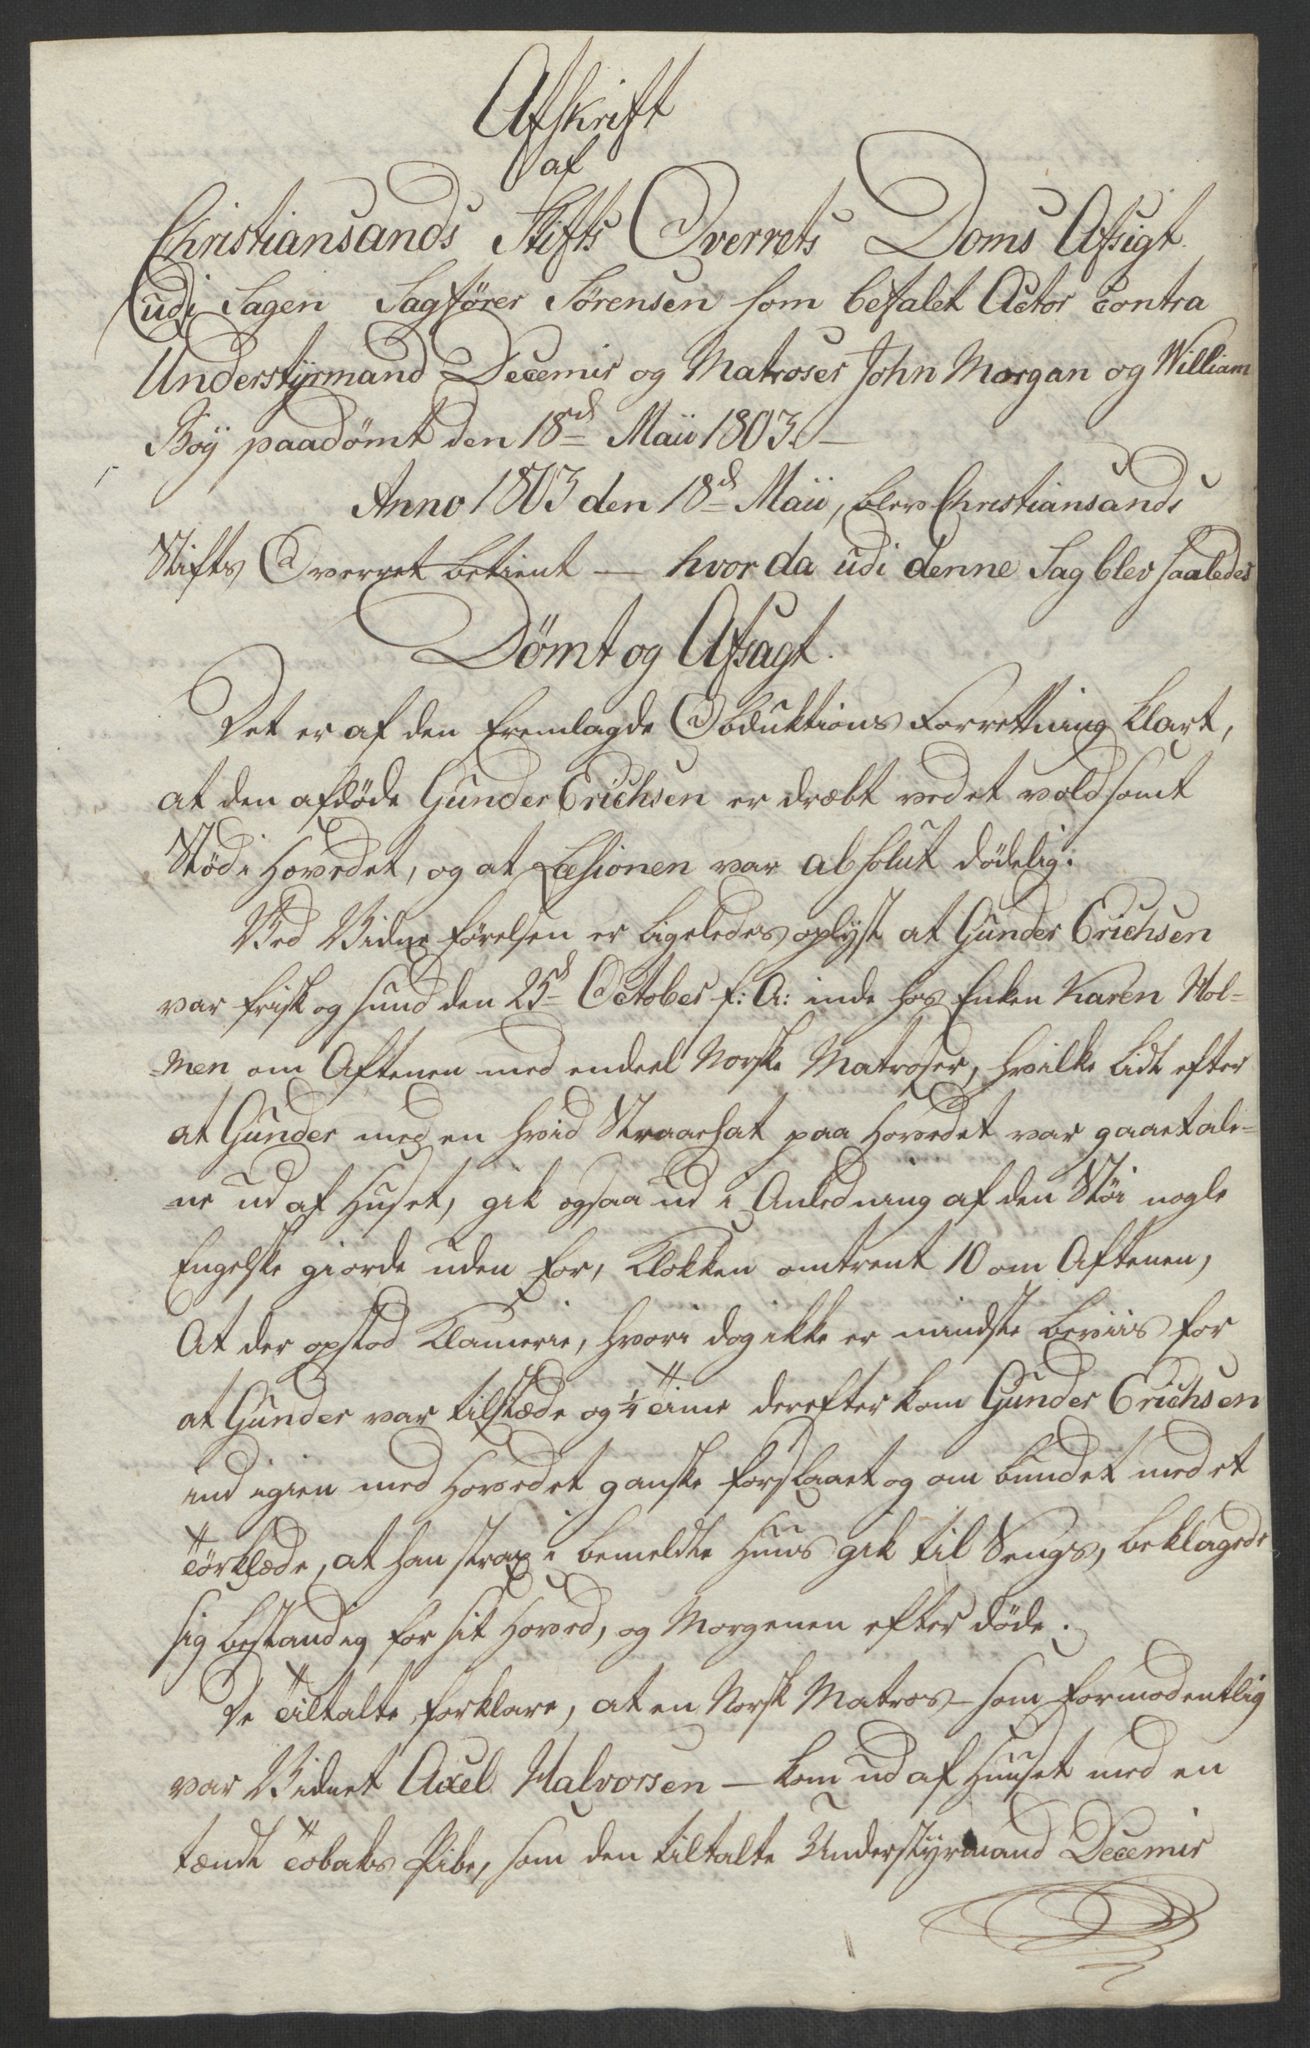 Afskrift
af
Christiansands Stifts Overrets Doms Afsigt
udi Sagen Sagfører Sørensen som befalet Actor contra
Understÿrmand Decemir og Matroser John Morgan og William
Boÿ paadømt den 18d Maii 1803. –
Anno 1803 den 18d Maii, blev Christiansands
Stifts Overret betient – hvor da udi denne Sag blev saaledes
Dømt og Afsagt.
Det er af den fremlagde Obduktions Forrettning klart,
at den afdøde Gunder Erichsen er dræbt ved et voldsomt
Stød i Hovedet, og at Læsionen var absolut dødelig:
Ved Vidne førelsen er ligeledes oplÿst at Gunder Erichsen
var frisk og sund den 25d October f: A: inde hos Enken Karen Hol-
-men om Aftenen med endeel Norske Matroser, hvilke lidt efter
at Gunder med en hvid Straaehat paa Hovedet var gaaet ale-
-ne ud af Huset, gik ogsaa ud i Anledning af den Støi nogle
Engelske giorde uden for, Klokken omtrent 10 om Aftenen,
At der opstod Klamerie, hvori dog ikke er mindste beviis for
at Gunder var tilstæde og ¼ Time derefter kom Gunder Erichsen
ind igien med Hovedet ganske forslaaet og om bundet med et
Tørklæde, at han strax i bemeldte Huus gik til Sengs, beklagede
sig bestandig for sit Hoved, og Morgenen efter døde.
De Tiltalte forklare, at en Norsk Matros – som formodentlig
var Vidnet Axel Halvorsen – kom ud af Huuset med en
tændt Tobaks Pibe, som den tiltalte Understyrmand Decemir